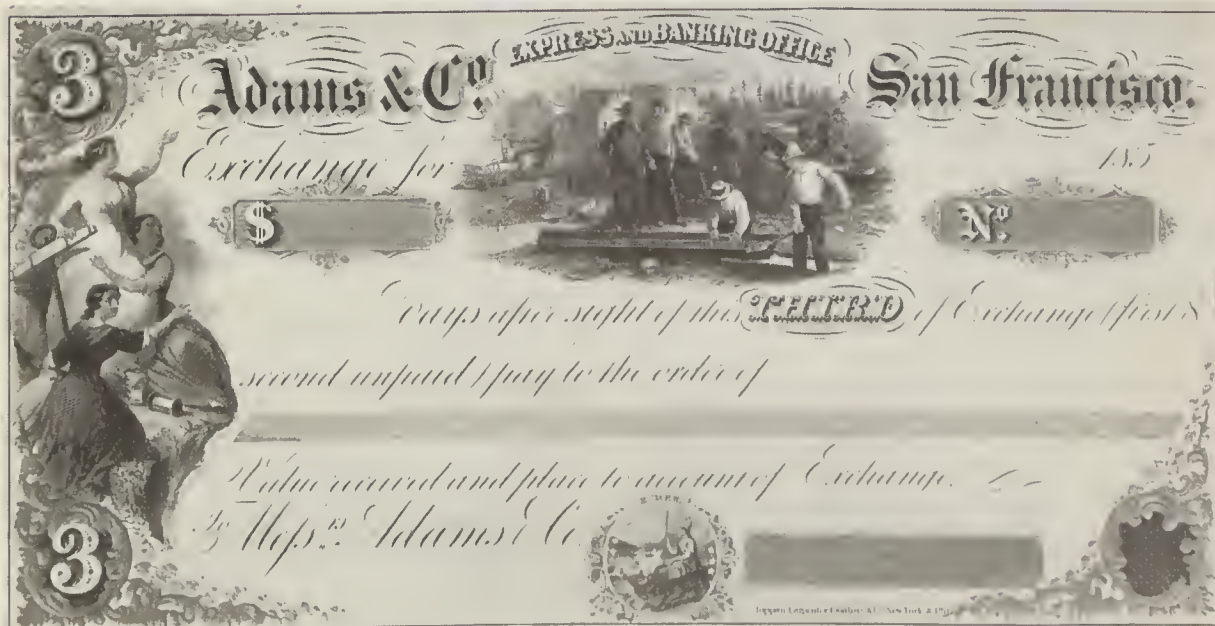 3
EXPRESS AND BANKING OFFICE
Adams & Co. San Francisco.
Exchange for 185
$ No.
Days after sight of this THIRD of Exchange (first &
second unpaid) pay to the order of
Value received and place to account of Exchange.
To Messrs. Adams & Co.
3
Toppan Carpenter Casilear & Co. New York & Phi